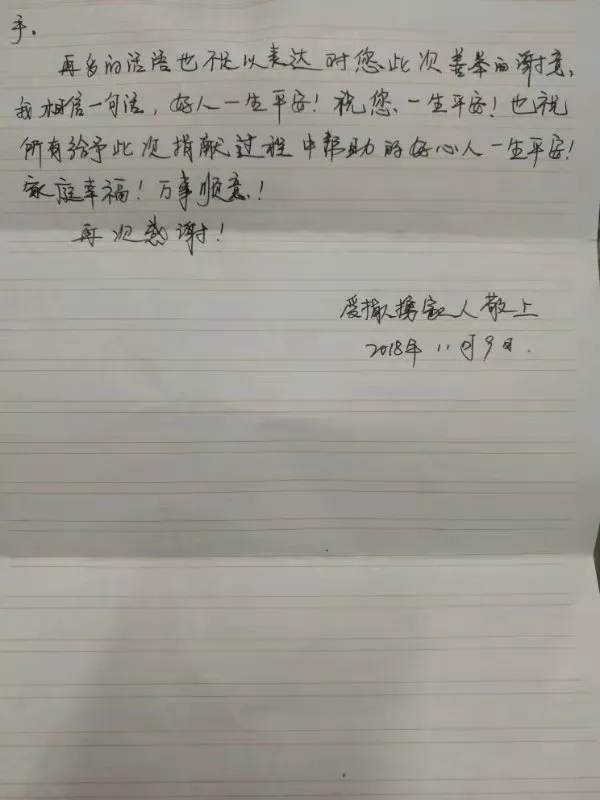 手。
再多的话语也不足以表达对您此次善举的谢意、
我相信一句话，好人一生平安！祝您、一生平安！也祝
所有给予此次捐献过程中帮助的好心人一生平安！
家庭幸福！万事顺意！
再次感谢！
受捐人携家人敬上
2018年11月9日.